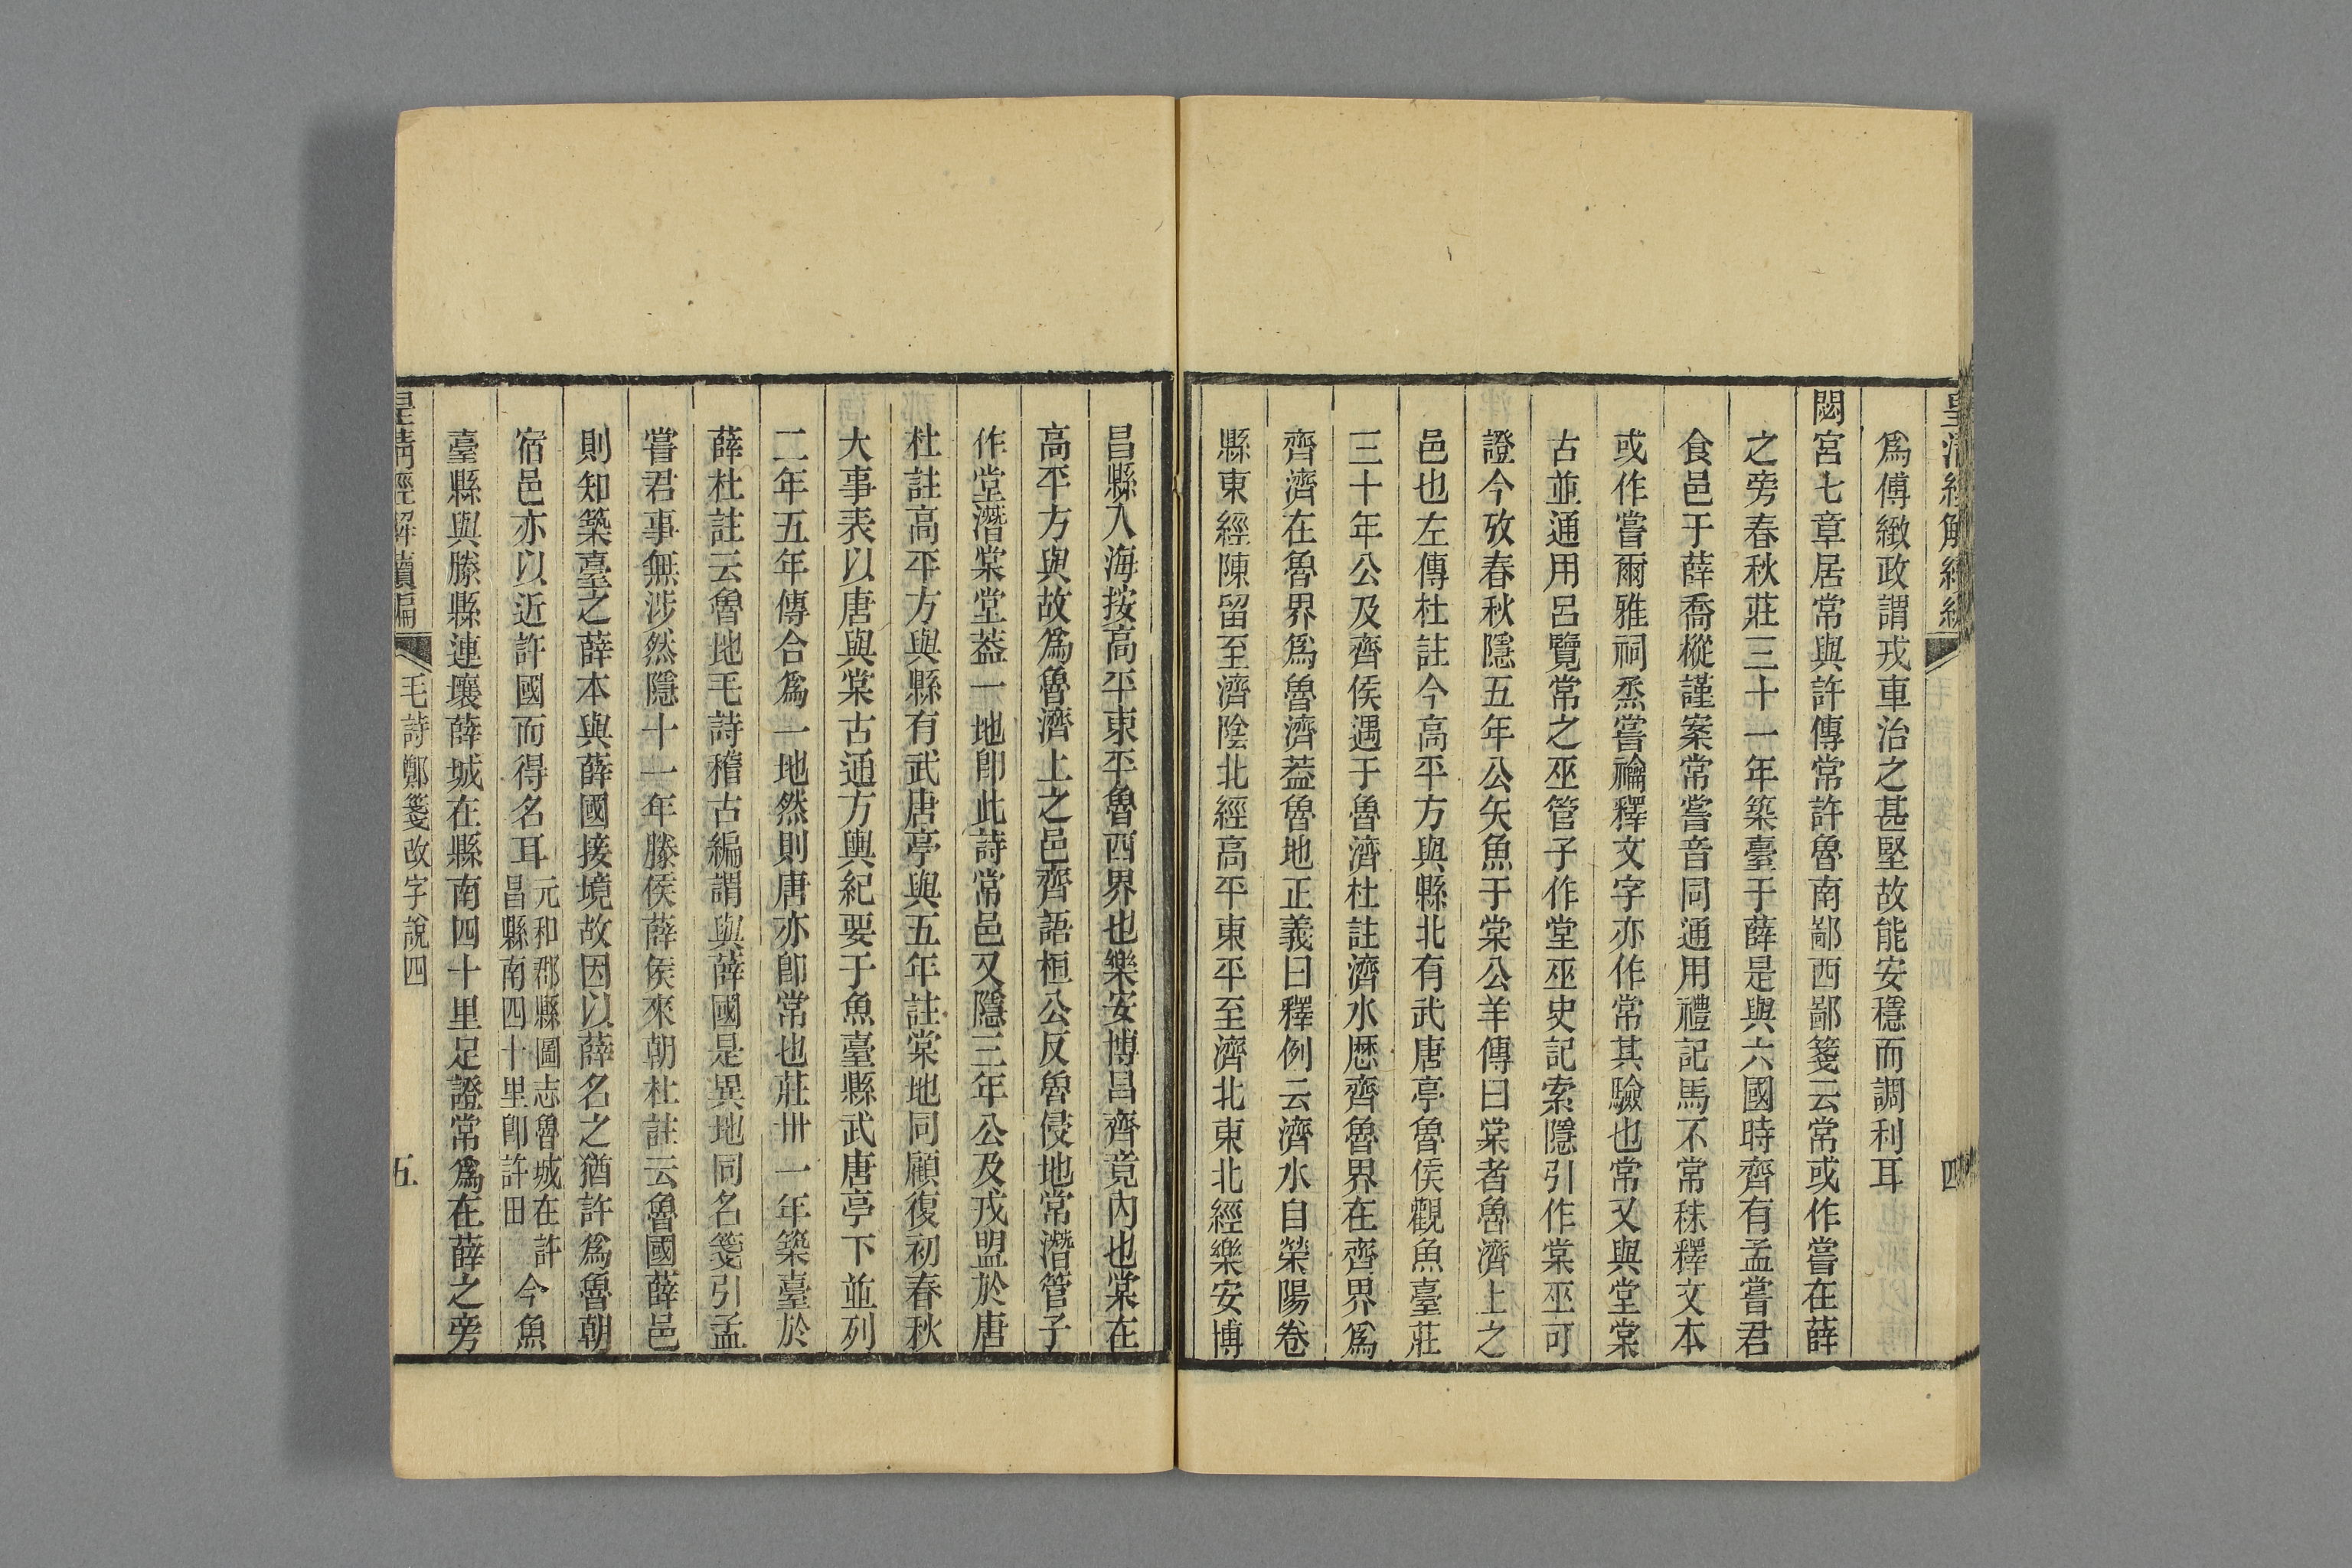 皇清經解續
四
爲傅緻政謂戎車治之甚堅故能安穩而調利耳
閟宮七章居常與許傳常許魯南鄙西鄙箋云常或作嘗在薛
之旁春秋莊三十一年築臺于薛是與六國時齊有孟嘗君
食邑于薛喬樅謹案常嘗音同通用禮記馬不常秣釋文本
或作嘗爾雅祠烝嘗禴釋文字亦作常其驗也常又與堂棠
古並通用呂覽常之巫管子作堂巫史記索隱引作棠巫可
證今攷春秋隱五年公矢魚于棠公羊傳曰棠者魯濟上之
邑也左傳杜註今高平方與縣北有武唐亭魯侯觀魚臺莊
三十年公及齊侯遇于魯濟杜註濟水歷齊魯界在齊界爲
齊濟在魯界爲魯濟葢魯地正義曰釋例云濟水自滎陽卷
縣東經陳留至濟陰北經高平東平至濟北東北經樂安博
昌縣入海按高平東平魯西界也樂安博昌齊竟內也棠在
高平方與故爲魯濟上之邑齊語桓公反魯侵地常潛管子
作堂潛棠堂葢一地卽此詩常邑又隱三年公及戎盟於唐
杜註高平方與縣有武唐亭與五年註棠地同顧復初春秋
大事表以唐與棠古通方輿紀要于魚臺縣武唐亭下並列
二年五年傳合爲一地然則唐亦卽常也莊卅一年築臺於
薛杜註云魯地毛詩稽古編謂與薛國是異地同名箋引孟
嘗君事無涉然隱十一年滕侯薛侯來朝杜註云魯國薛邑
則知築臺之薛本與薛國接境故因以薛名之猶許爲魯朝
宿邑亦以近許國而得名耳元和郡縣圖志魯城在許昌縣南四十里卽許田今魚
臺縣與滕縣連壤薛城在縣南四十里足證常爲在薛之旁
皇清經解續編
毛詩鄭箋改字說四
五